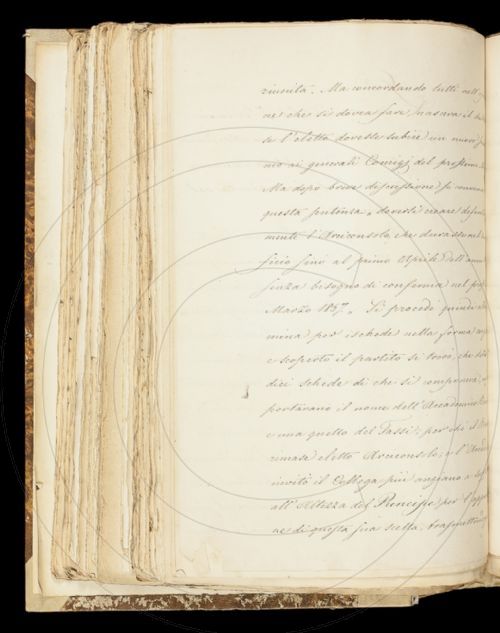 riunità. Ma concordando tutti nell'
ne che si dovea fare, nasceva il
se l'eletto dovesse subire un nuovo
nio ai generali Comizj del prossimo
Ma dopo breve discussione si convenne
questa sentenza, doversi creare defini
mente l'Arciconsolo, che durasse nel
ficio fino al primo Aprile dell'anno
senza bisogno di conferma nel
Marzo 1837. Si procedè quindi
mina per ischede nella forma
e scoperto il partito si trovò, che
dici schede di che si componeva,
portavano il nome dell'Accademico
e una quello del Tassi; per chi il
rimase eletto Arciconsolo; e l'
invitò il Collega più anziano a
all'Altezza del Principe per l'app
ne di questa sua scelta, trasmettendo